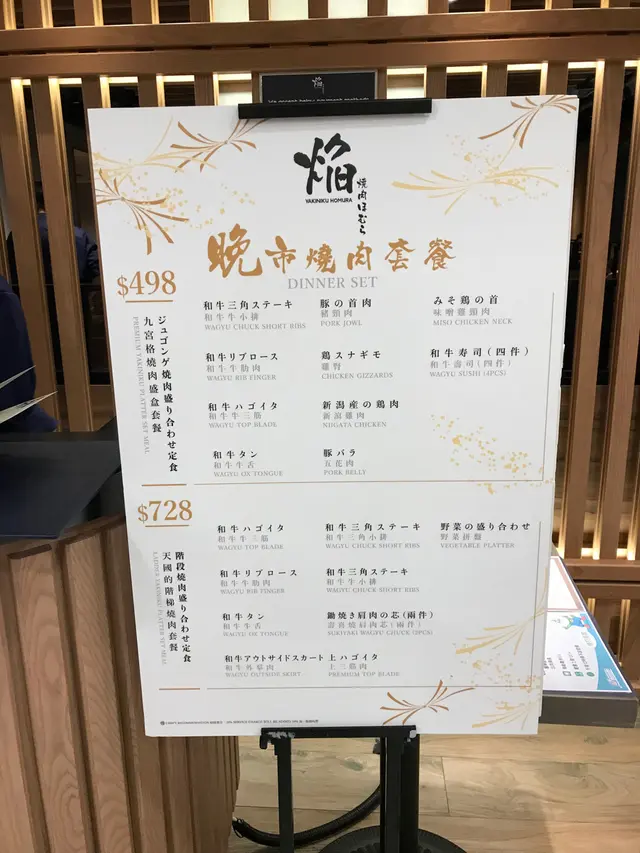 焔
焔
YAKINIKU HOMURA
焼肉ほむら
晚市燒肉套餐
DINNER SET
$498
ジュゴンゲ焼肉盛り合わせ定食
九宮格燒肉盛盒套餐
PREMIUM YAKINIKU PLATTER SET MEAL
和牛三角ステーキ
和牛牛小排
WAGYU CHUCK SHORT RIBS
豚の首肉
豬頸肉
PORK JOWL
みそ鶏の首
味噌雞頸肉
MISO CHICKEN NECK
和牛リブロース
和牛牛肋肉
WAGYU RIB FINGER
鶏スナギモ
雞腎
CHICKEN GIZZARDS
和牛寿司(四件)
和牛壽司(四件)
WAGYU SUSHI (4PCS)
和牛ハゴイタ
和牛牛三筋
WAGYU TOP BLADE
新潟産の鶏肉
新潟雞肉
NIIGATA CHICKEN
和牛タン
和牛牛舌
WAGYU OX TONGUE
豚バラ
五花肉
PORK BELLY
$728
階段焼肉盛り合わせ定食
天國的階梯燒肉套餐
LADDER YAKINIKU PLATTER SET MEAL
和牛ハゴイタ
和牛牛三筋
WAGYU TOP BLADE
和牛三角ステーキ
和牛三角小排
WAGYU CHUCK SHORT RIBS
野菜の盛り合わせ
野菜拼盤
VEGETABLE PLATTER
和牛リブロース
和牛牛肋肉
WAGYU RIB FINGER
和牛三角ステーキ
和牛牛小排
WAGYU CHUCK SHORT RIBS
和牛タン
和牛牛舌
WAGYU OX TONGUE
鋤焼き肩肉の芯(兩件)
壽喜燒肩肉芯(兩件)
SUKIYAKI WAGYU CHUCK (2PCS)
和牛アウトサイドスカート
WAGYU OUTSIDE SKIRT
上ハゴイタ
上三筋肉
PREMIUM TOP BLADE